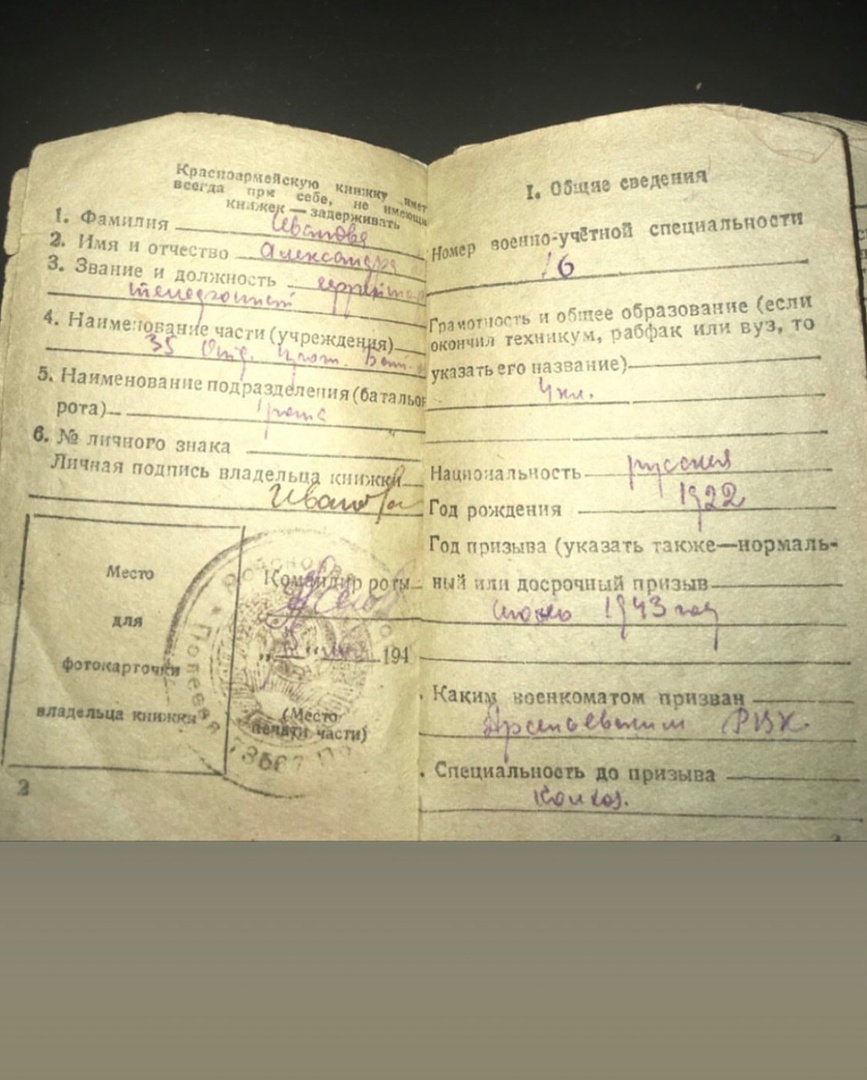 Красноармейскую книжку имет
всегда при себе, не имеющи
книжек — задерживать
1. Фамилия Иванова
2. Имя и отчество Александра
3. Звание и должность ефрейтор
телефонист
4. Наименование части (учреждения)
35 Отд.
5. Наименование подразделения (батальон
рота)
6. № личного знака
Личная подпись владельца книжки
Иванова
Место
для
фотокарточки
владельца книжки
Командир роты
194
(Место
печати части)
Полевая
2
I. Общие сведения
Номер военно-учётной специальности
16
Грамотность и общее образование (если
окончил техникум, рабфак или вуз, то
указать его название)
4 кл.
Национальность русская
Год рождения 1922
Год призыва (указать также—нормаль-
ный или досрочный призыв
1943 год
Каким военкоматом призван
Арсеньевским РВК.
Специальность до призыва
Колхоз.